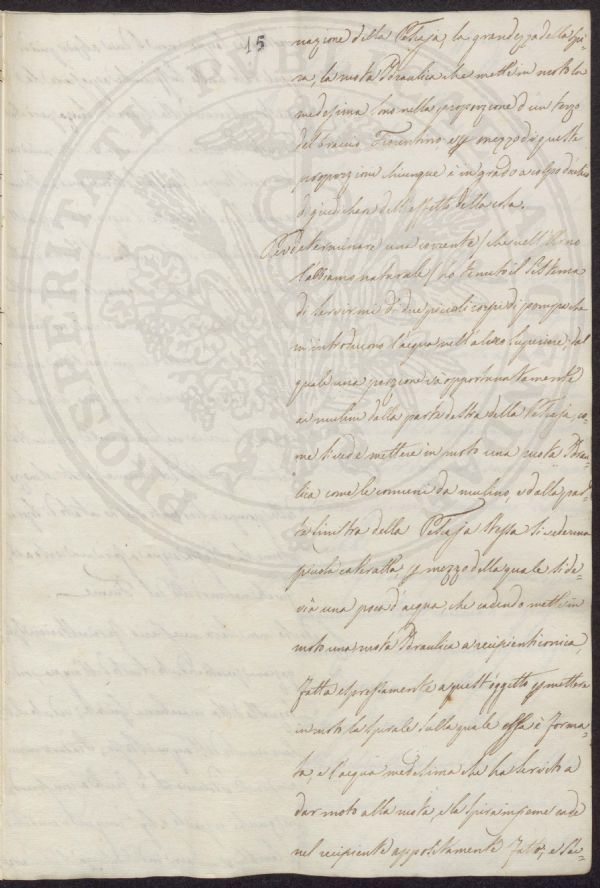 15
nazione della Pescaja, la grandezza della Spi-
ra, la ruota Idraulica che mette in moto la
medesima sono nella proporzione d'un terzo
del braccio Fiorentino e p mezzo di queste
proporzioni chiunque è in grado a colpo d'occhio
di giudicare dell'effetto della cosa.
Per determinare una corrente (che nell'Arno
l'abbiamo naturale) ho tenuto il sistema
di servirmi di due piccoli corpi di pompe che
m'introducono l'acqua nell'alveo superiore, dal
quale una porzione va opportunatamente
ai mulini dalla parte destra della Pescaja, co-
me si vede mettere in moto una ruota Idrau-
lica come le comuni da mulino, e dalla par-
te sinistra della Pescaja stessa si vede una
piccola cateratta, p mezzo della quale si de-
via una poca d'acqua che cadendo mette in
moto una ruota Idraulica a recipienti conica,
fatta espressamente a quest'oggetto p mettere
in moto la spirale sulla quale essa è forma-
ta, e l'acqua medesima che ha servito a
dar moto alla ruota, e la spira insieme cade
nel recipiente appositamente fatto, e
PROSPERITATI PVBLICAE